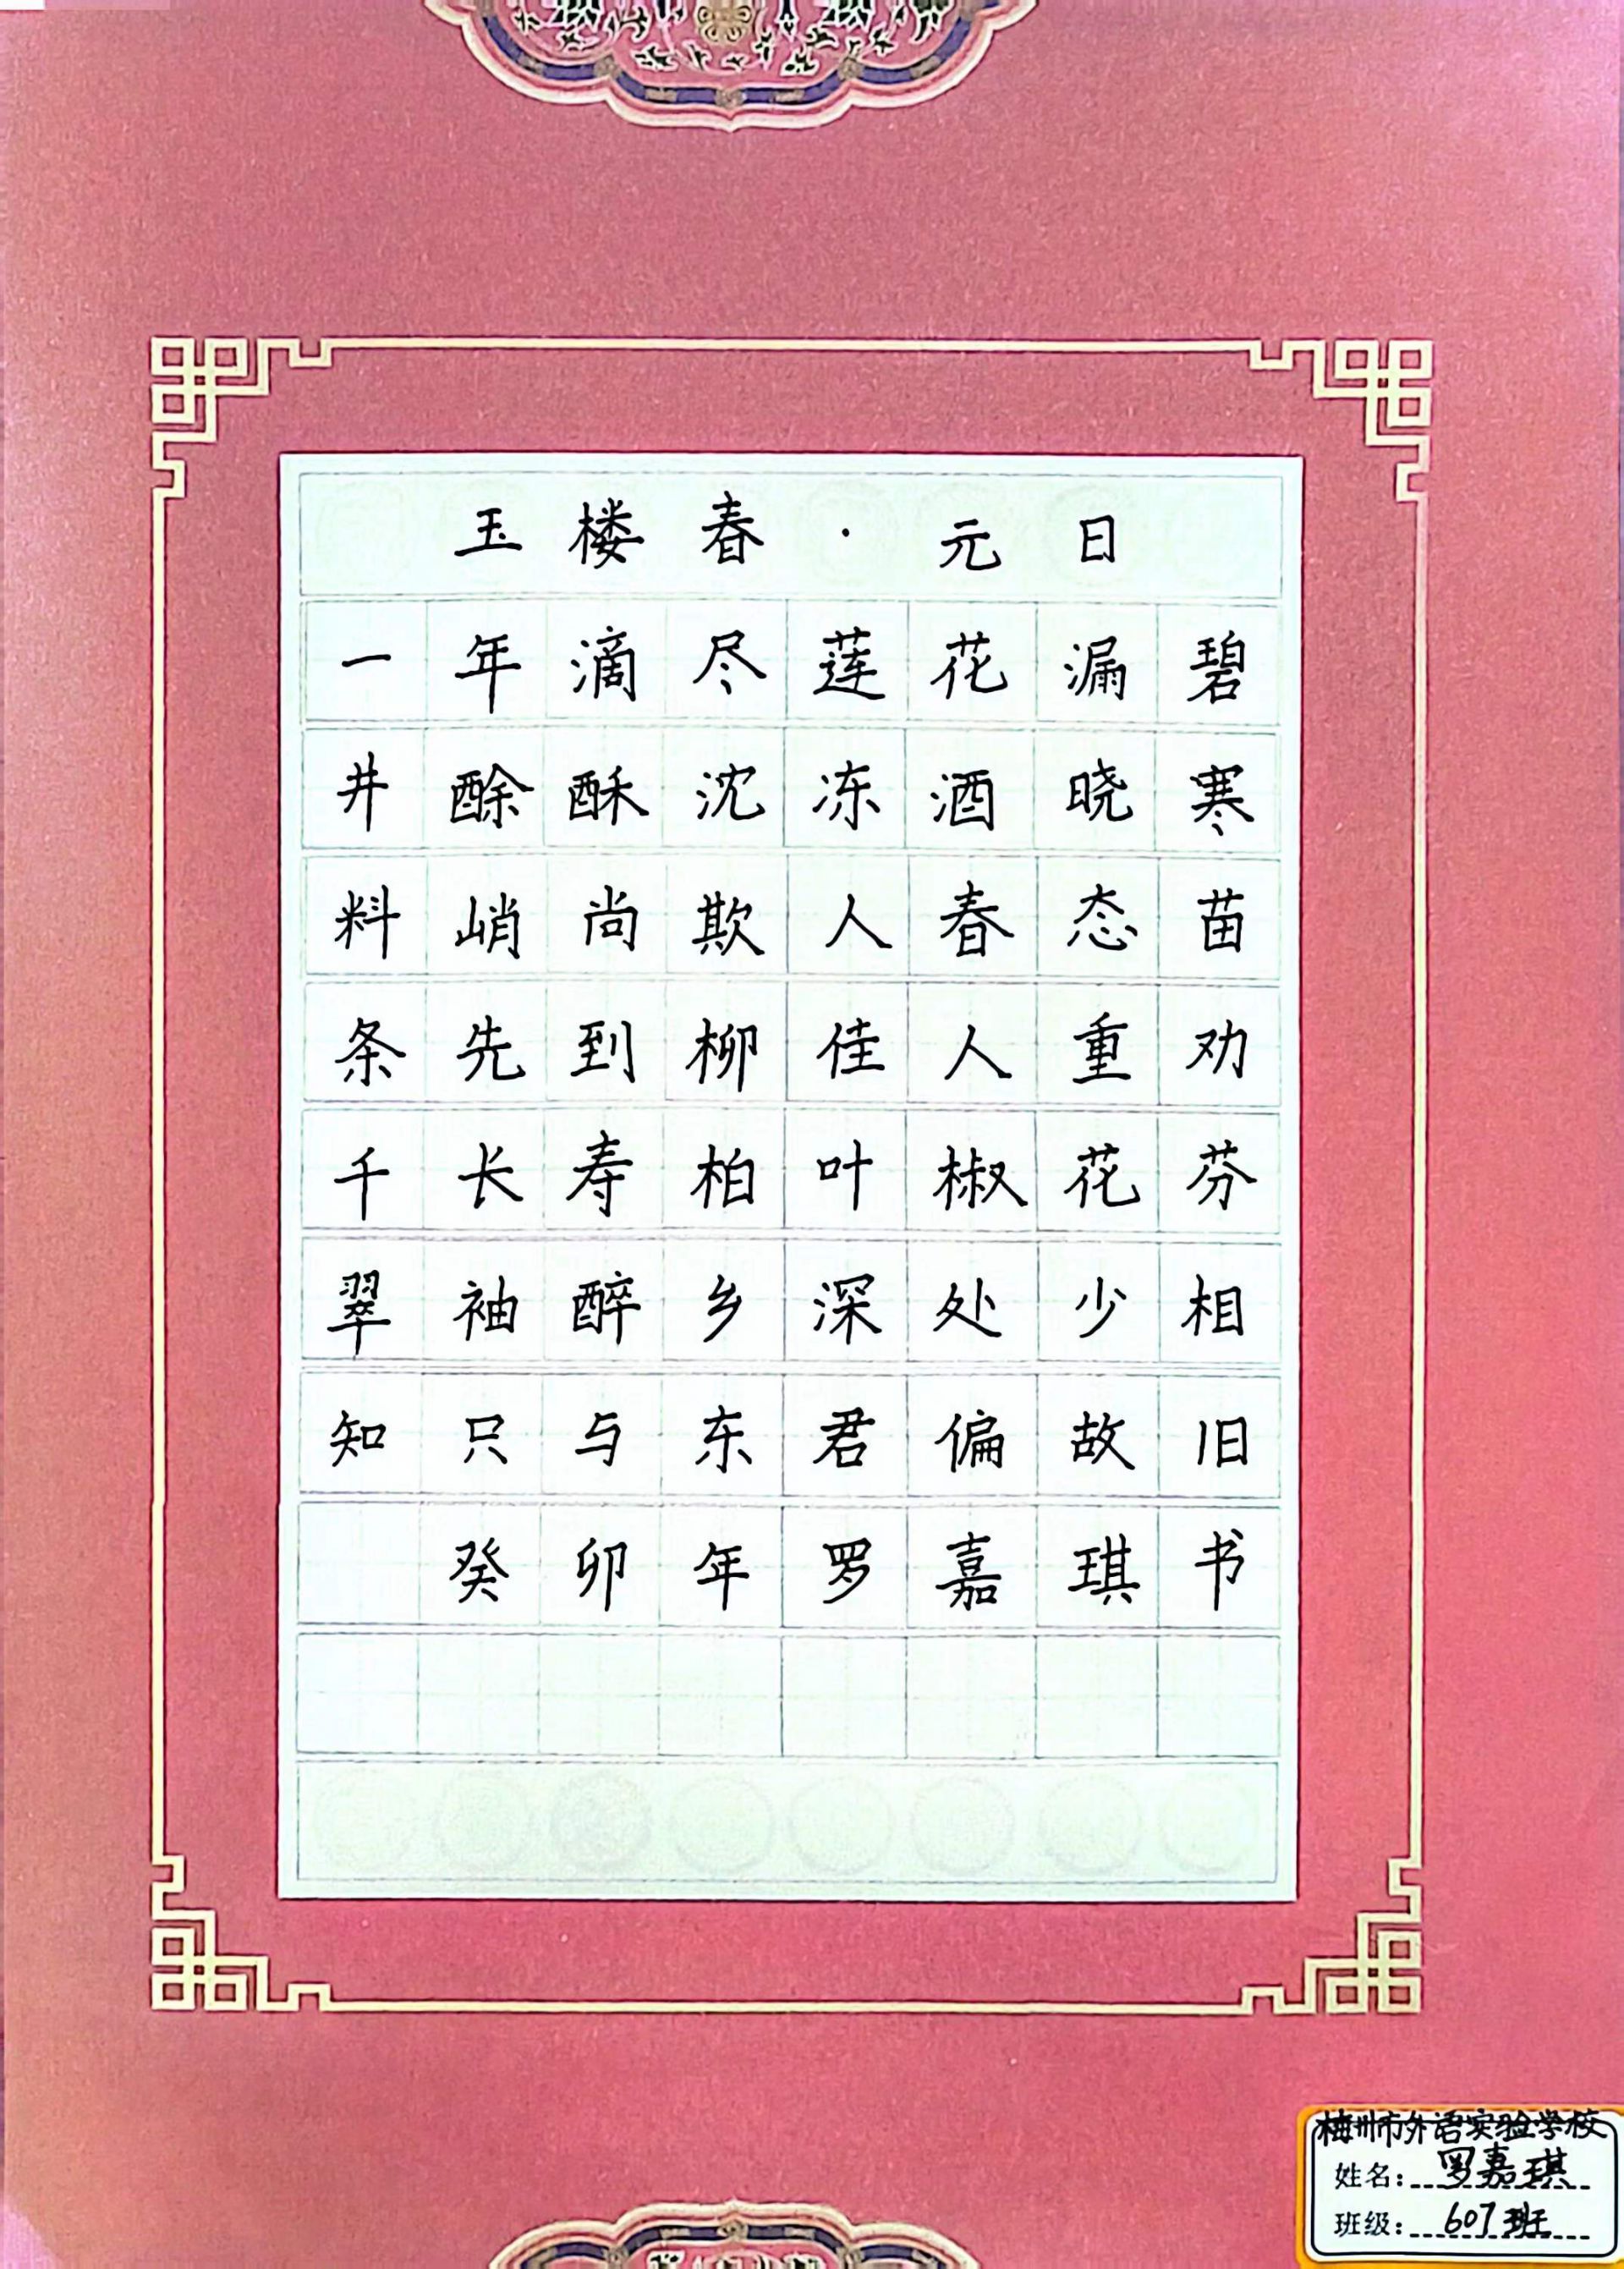 玉楼春·元日
一年滴尽莲花漏碧
井酴酥沈冻酒晓寒
料峭尚欺人春态苗
条先到柳佳人重劝
千长寿柏叶椒花芬
翠袖醉乡深处少相
知只与东君偏故旧
癸卯年罗嘉琪书
梅州市外语实验学校
姓名：罗嘉琪
班级：607班